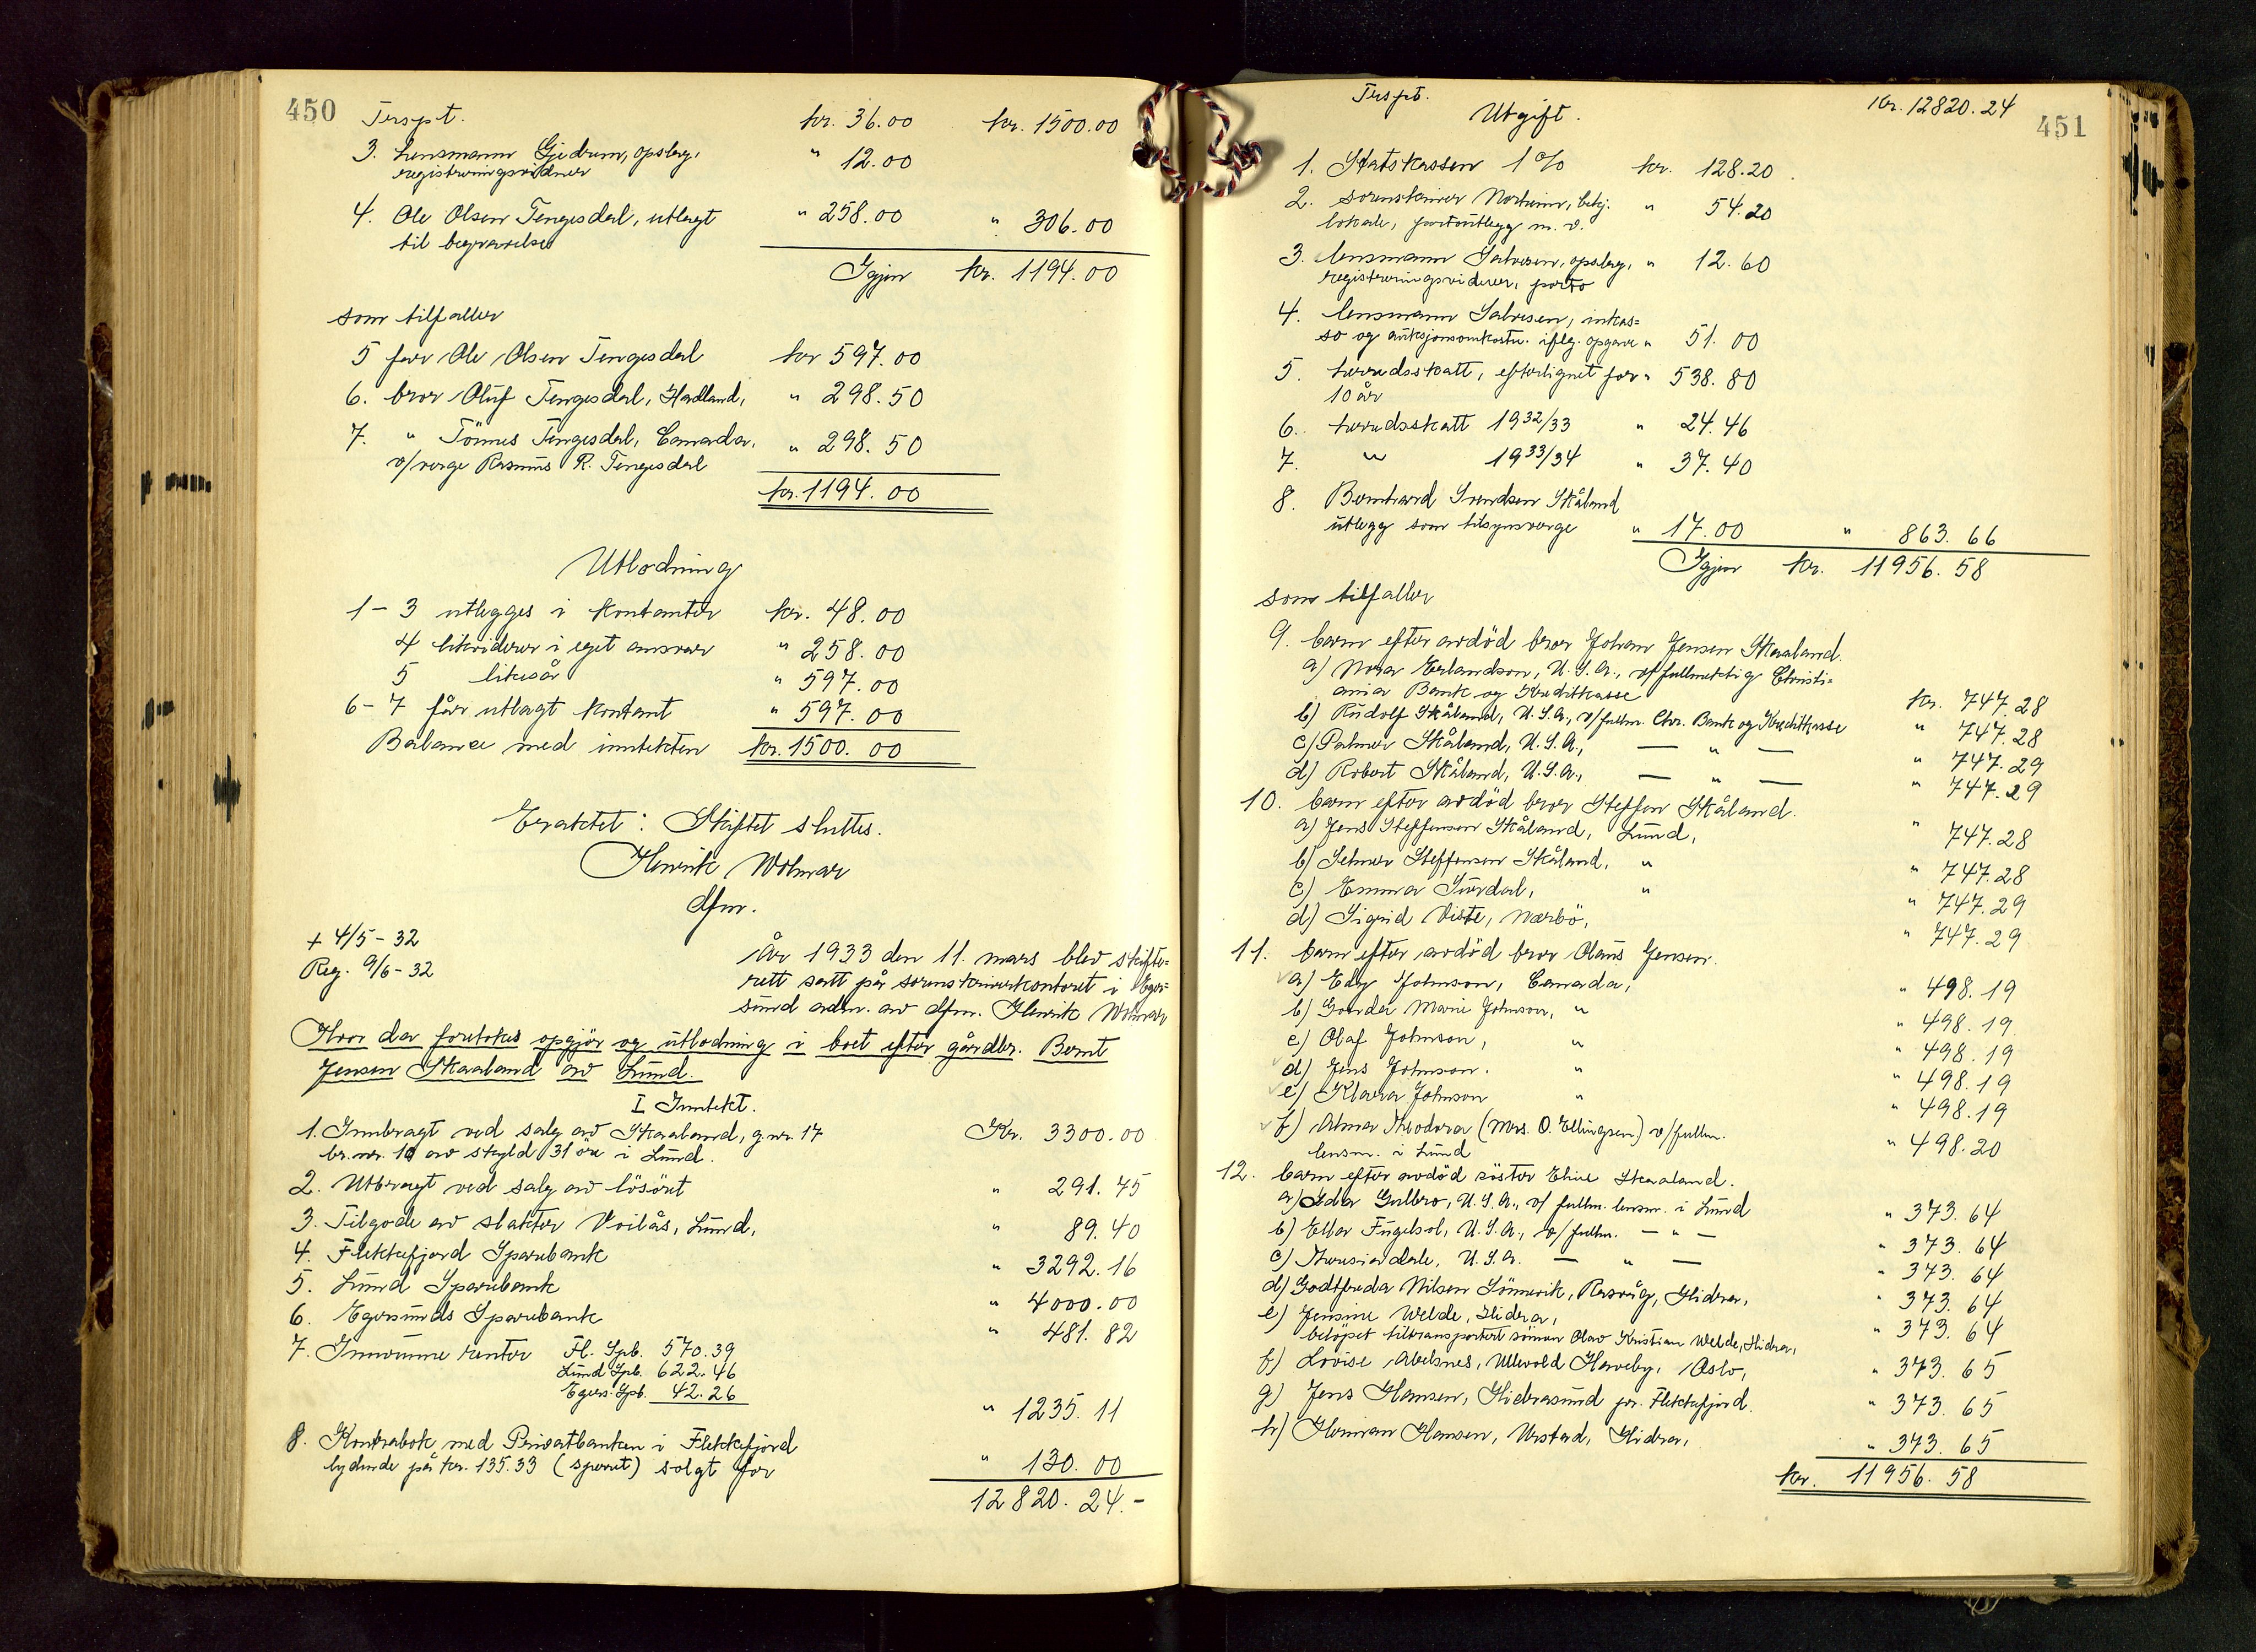 450
Trspt. kr. 36.00 kr. 1500.00
3. Lensmann Gjedrem, opslag, " 12.00
registreringsvidner
4. Ole Olsen Tengesdal, utlagt " 258.00 " 306.00
til begravelse
Igjen kr. 1194.00
som tilfaller
5 far Ole Olsen Tengesdal kr 597.00
6. bror Oluf Tengesdal, Hadland, " 298.50
7. " Tönnes Tengesdal, Canada, " 298.50
v/verge Rasmus R. Tengesdal
kr. 1194.00
Utlodning
1-3 utlegges i kontanter kr. 48.00
4 likviderer i eget ansvar " 258.00
5 likeså " 597.00
6-7 får utlagt kontant " 597.00
Balance med inntekten kr. 1500.00
Eraktet: Skiftet sluttes.
Henrik Wolmar
dfm.
+ 4/5-32
Reg. 9/6-32
År 1933 den 11. mars blev skifte=
rett satt på sorenskriverkontoret i Eger=
sund adm. av dfm. Henrik Wolmar
Hvor da foretokes opgjör og utlodning i boet efter gårdbr. Bernt
Jensen Skaaland av Lund.
I Inntekt.
1. Innbragt ved salg av Skaaland, g.nr. 17 Kr. 3300.00
br.nr. 10 av skyld 31 öre i Lund.
2. Utbragt ved salg av lösöret " 291.45
3. Tilgode av slakter Voilås, Lund, " 89.40
4. Flekkefjord Sparebank " 3292.16
5. Lund Sparebank " 4000.00
6. Egersunds Sparebank " 481.82
7. Innvunne renter Fl. Spb. 570.39
Lund Spb. 622.46
Egers. Spb. 42.26 " 1235.11
8. Kontrabok med Privatbanken i Flekkefjord
lydende på kr. 135.33 (sperret) solgt for " 130.00
12820.24.-
451
Trspt. Kr. 12820.24
Utgift.
1. Statskassen 1% kr. 128.20
2. sorenskriver Northeim, bekj. " 54.20
lokale, portoutlegg m.v.
3. lensmann Salvesen, opslag, " 12.60
registreringsvidner, porto
4. lensmann Salvesen, inkas=
so og auksjonsomkostn. iflg. opgave " 51.00
5. herredsskatt, efterlignet for " 538.80
10 år
6. herredsskatt 1932/33 " 24.46
7. " 1933/34 " 37.40
8. Bernhard Svendsen Skåland
utlegg som tilsynsverge " 17.00 " 863.66
Igjen kr. 11956.58
som tilfaller
9. barn efter avdöd bror Johan Jensen Skaaland.
a) Nora Erlandson, U.S.A., v/fullmektig Christi=
ania Bank og Kreditkasse kr. 747.28
b) Rudolf Skåland, U.S.A., v/fullm. Chr. Bank og Kreditkasse " 747.28
c) Palmer Skåland, U.S.A., — " — " 747.29
d) Robert Skåland, U.S.A., — " — " 747.29
10. barn efter avdöd bror Steffen Skåland.
a) Jens Steffensen Skåland, Lund, " 747.28
b) Selmer Steffensen Skåland, " " 747.28
c) Emma Surdal, " " 747.29
d) Sigrid Viste, Nærbö, " 747.29
11. barn efter avdöd bror Olaus Jensen.
a) Edy Johnson, Canada, " 498.19
b) Gonda Marie Johnson, " " 498.19
c) Olaf Johnson, " " 498.19
d) Jens Johnson. " " 498.19
e) Klara Johnson " " 498.19
f) Alma Theodora (Mrs. O. Ellingsen) v/fullm.
lensm. i Lund " 498.20
12. barn efter avdöd söster Eline Skaaland.
a) Ida Gulbro, U.S.A., v/ fullm. lensm. i Lund " 373.64
b) Ella Fugelsol, U.S.A., v/ fullm. — " — " 373.64
c) Theresia Dale, U.S.A. — " — " 373.64
d) Godtfreda Nilsen Sünnvik, Rasvåg, Hidra, " 373.64
e) Jensine Welde, Hidra, " 373.64
belöpet tiltransportert sönnen Olav Kristian Welde, Hidra,
f) Lovise Abelsnes, Ullevold Haveby, Oslo, " 373.65
g) Jens Hansen, Hidrasund pr. Flekkefjord. " 373.65
h) Herman Hansen, Urstad, Hidra, " 373.65
kr. 11956.58